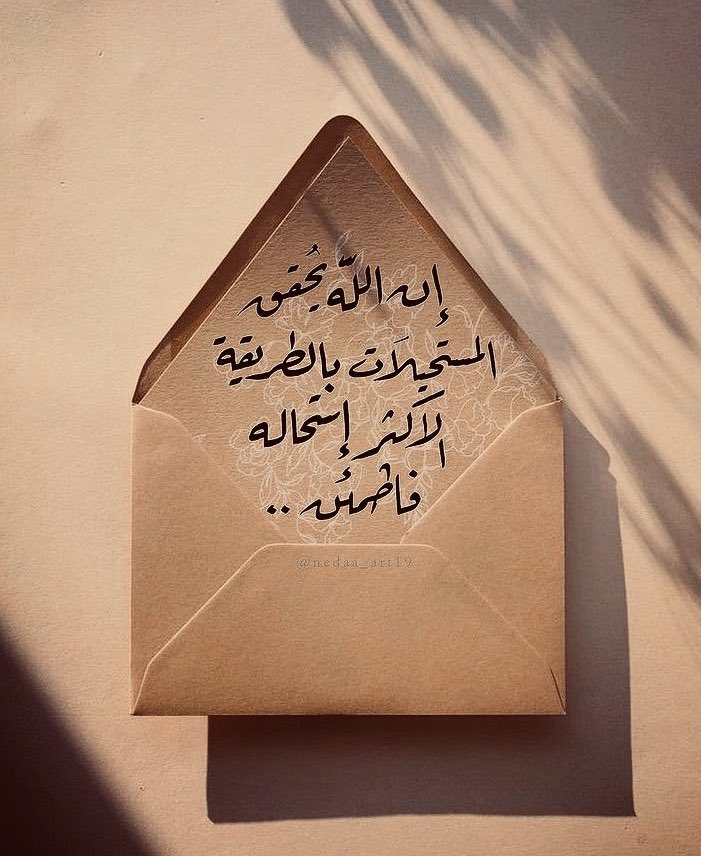 إن اللّه يُحقق
المستحيلَات بالطريقة
الأكثر إستحاله
فاطمئن ..
@nedaa_art19